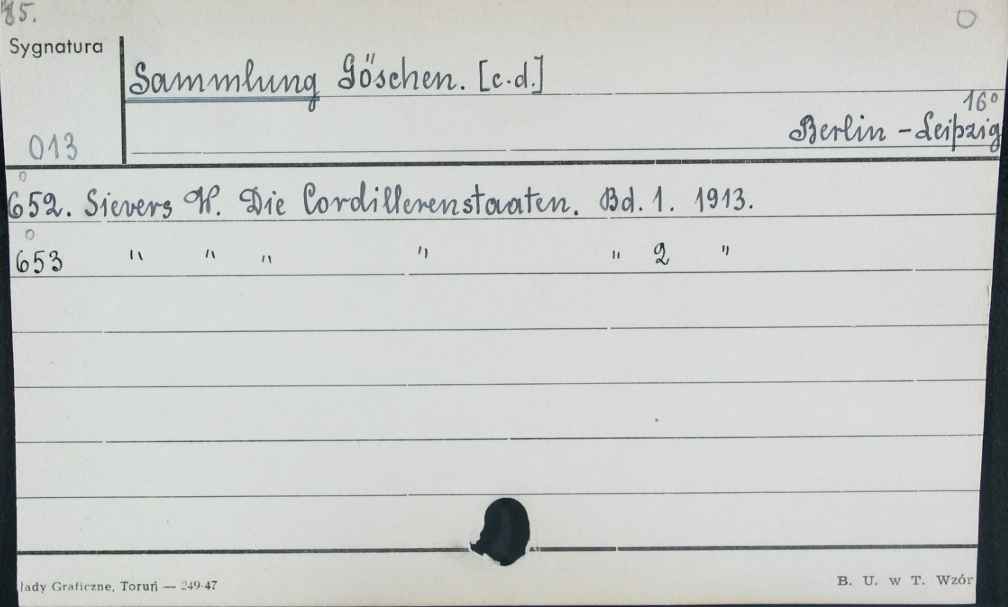 85.
Sygnatura
Sammlung Göschen. [c.d.]
16°
013
Berlin - Leipzig
652. Sievers W. Die Cordillerenstaaten. Bd. 1. 1913.
653 " " " " " 2 "
lady Graficzne, Toruń — 249-47
B. U. w T. Wzór